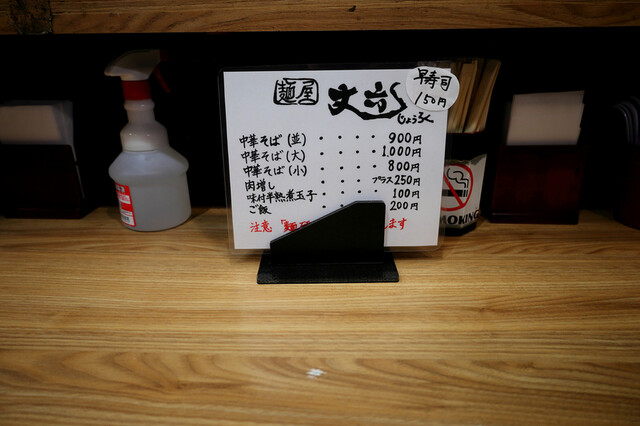 麺屋 丈六
じょうろく
早寿司
150円
中華そば(並)・・・・900円
中華そば(大)・・・・1,000円
中華そば(小)・・・・800円
肉増し・・・・プラス250円
味付半熟煮玉子・・・・100円
ご飯・・・・200円
注意「麺 ます
SMOKING